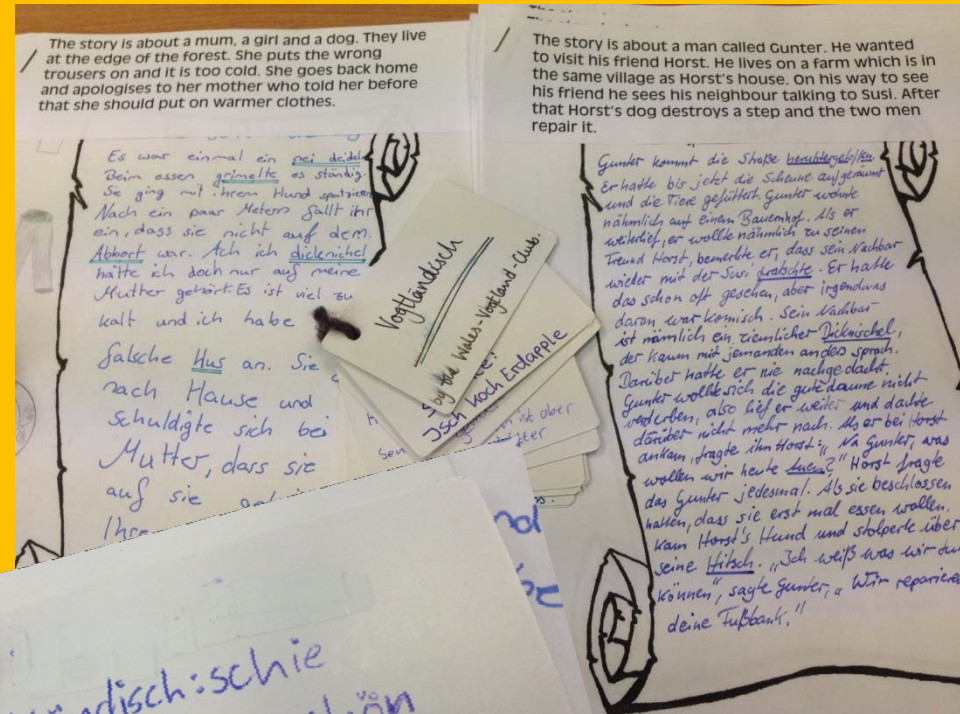 The story is about a mum, a girl and a dog. They live
at the edge of the forest. She puts the wrong
trousers on and it is too cold. She goes back home
and apologises to her mother who told her before
that she should put on warmer clothes.
Es war einmal ein nei deidel
Beim essen grimelte es ständig.
Sie ging mit ihrem Hund spatzieren
Nach ein paar Metern fällt ihr
ein, dass sie nicht auf dem
Abbort war. Ach ich dicknichel
hätte ich doch nur auf meine
Mutter gehört. Es ist viel zu
kalt und ich habe
falsche Hus an. Sie
nach Hause und
schuldigte sich bei
Mutter, dass sie
auf sie
Ihre
Vogtländisch
by the Wales-Vogtland-Club.
Isch koch Erdapple
ist aber
The story is about a man called Gunter. He wanted
to visit his friend Horst. He lives on a farm which is in
the same village as Horst's house. On his way to see
his friend he sees his neighbour talking to Susi. After
that Horst's dog destroys a step and the two men
repair it.
Gunter kommt die Straße
Er hatte bis jetzt die Scheune aufgeräumt
und die Tiere gefüttert. Gunter wohnte
nähmlich auf einem Bauernhof. Als er
weiterlief, er wollte nähmlich zu seinen
Freund Horst, bemerkte er, dass sein Nachbar
wieder mit der Susi tratschte. Er hatte
das schon oft gesehen, aber irgendwas
daran war komisch. Sein Nachbar
ist nämlich ein ziemlicher Dicknischel,
der kaum mit jemanden anders sprach.
Darüber hatte er nie nachgedacht.
Gunter wollte sich die gute daune nicht
verderben, also lief er weiter und dachte
darüber nicht mehr nach. Als er bei Horst
ankam, fragte ihn Horst: „Na Gunter, was
wollen wir heute tuen?" Horst fragte
das Gunter jedesmal. Als sie beschlossen
hatten, dass sie erst mal essen wollen,
kam Horst's Hund und stolperte über
seine Hitsch. „Ich weiß was wir tun
können", sagte Gunter, „Wir reparieren
deine Fußbank."
ndisch: schie